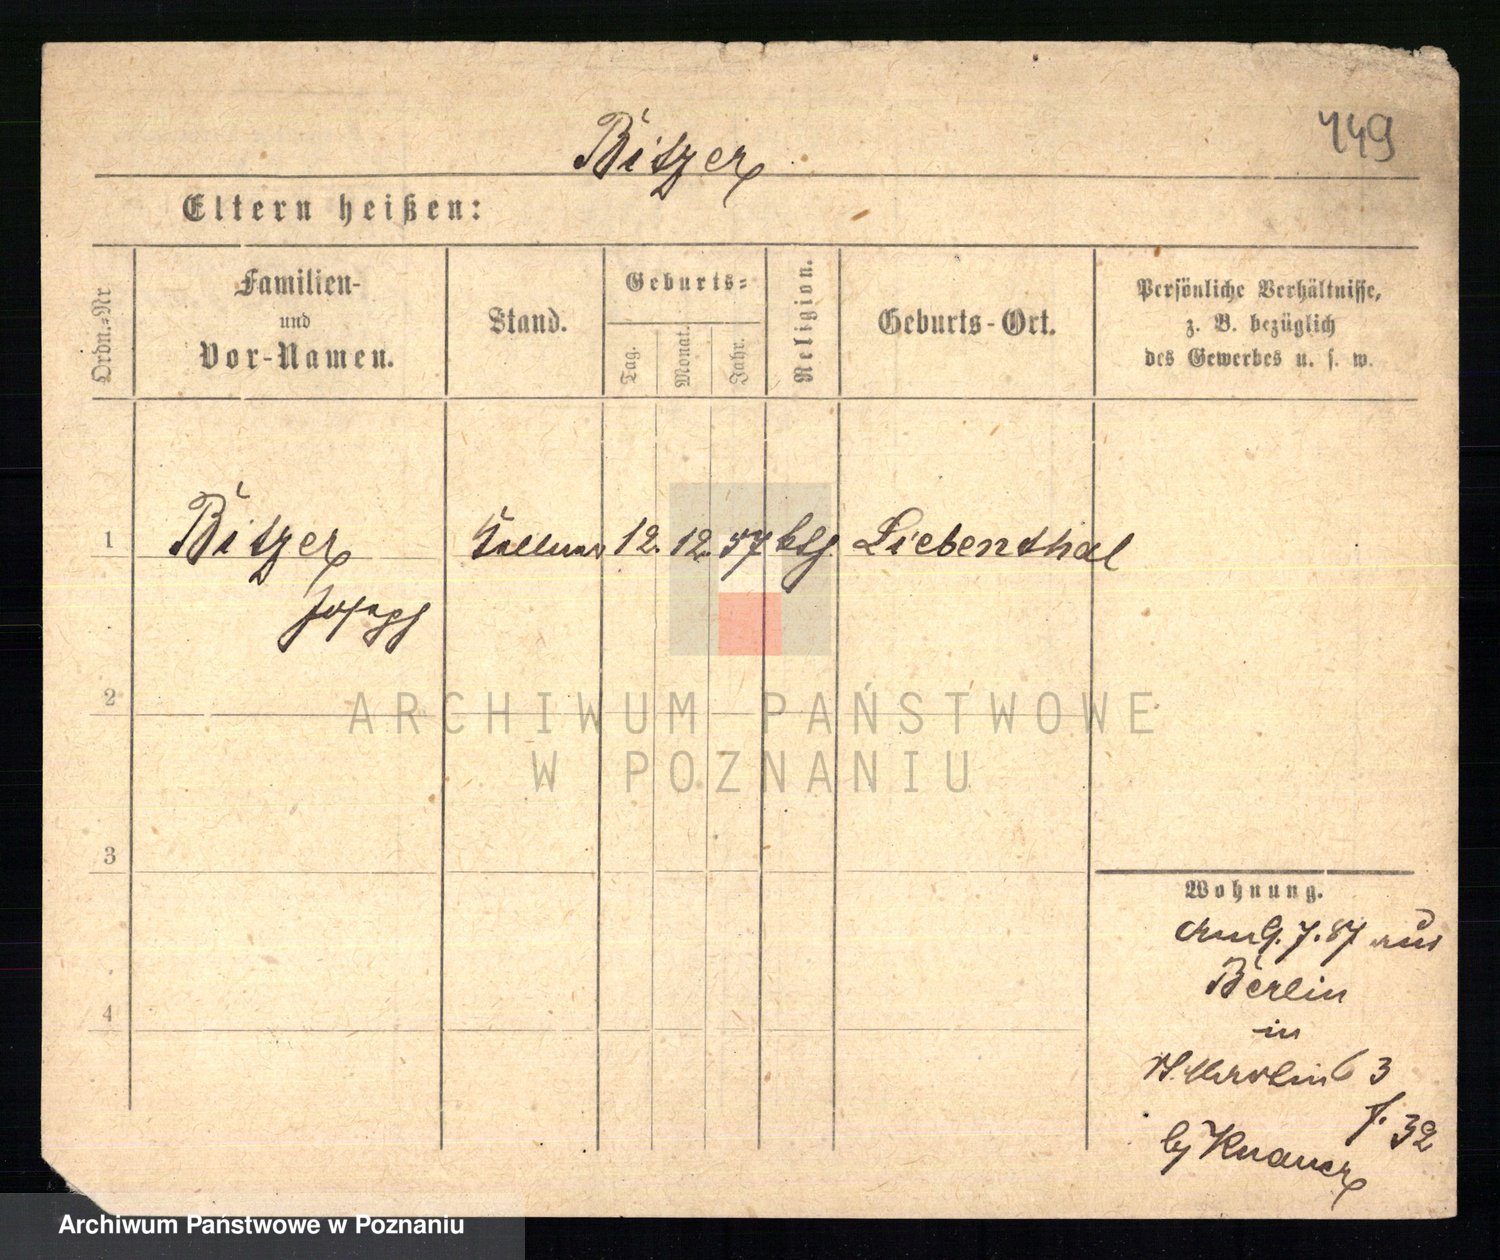 Bitzer
449
Eltern heißen:
Ordn.-Nr
Familien-
und
Vor-Namen.
Stand.
Geburts-
Tag.
Monat.
Jahr.
Religion.
Geburts-Ort.
Persönliche Verhältnisse,
z. B. bezüglich
des Gewerbes u. s. w.
1
Bitzer
Joseph
Kellner
12. 12. 57
ktl
Liebenthal
2
3
4
Wohnung.
9. 7. 87 aus
Berlin
in
3
f. 32
by Knauer
ARCHIWUM PAŃSTWOWE
W POZNANIU
Archiwum Państwowe w Poznaniu